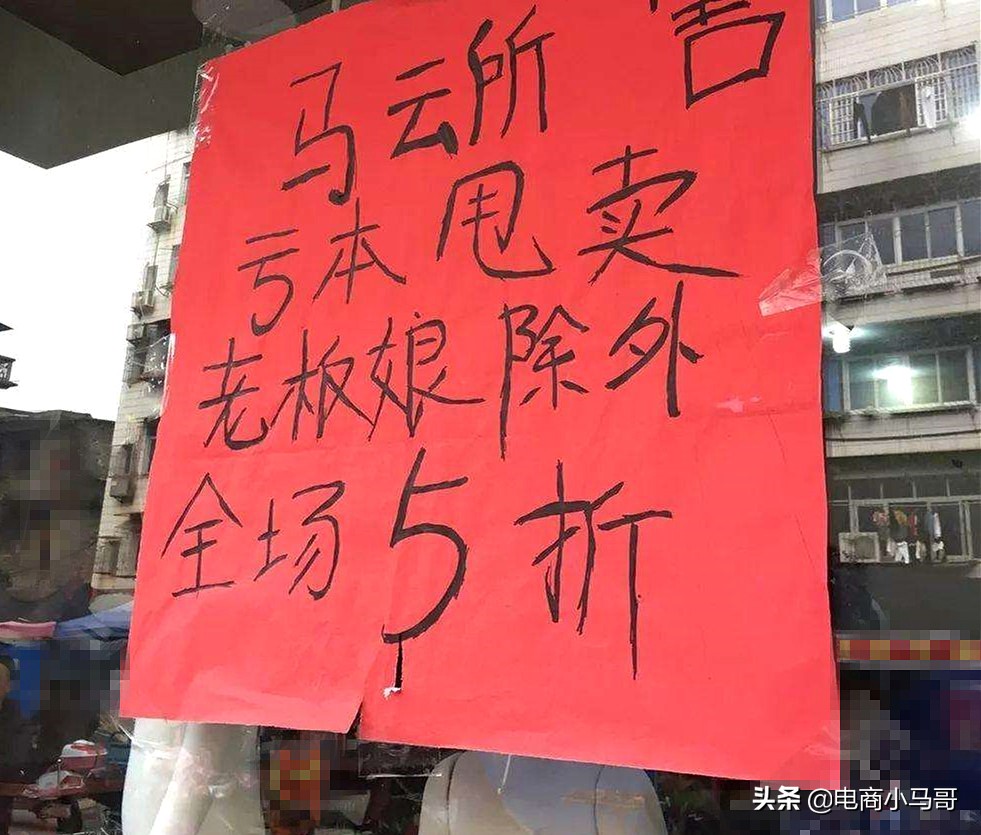 马云所
亏本甩卖
老板娘除外
全场5折
头条 @电商小马哥